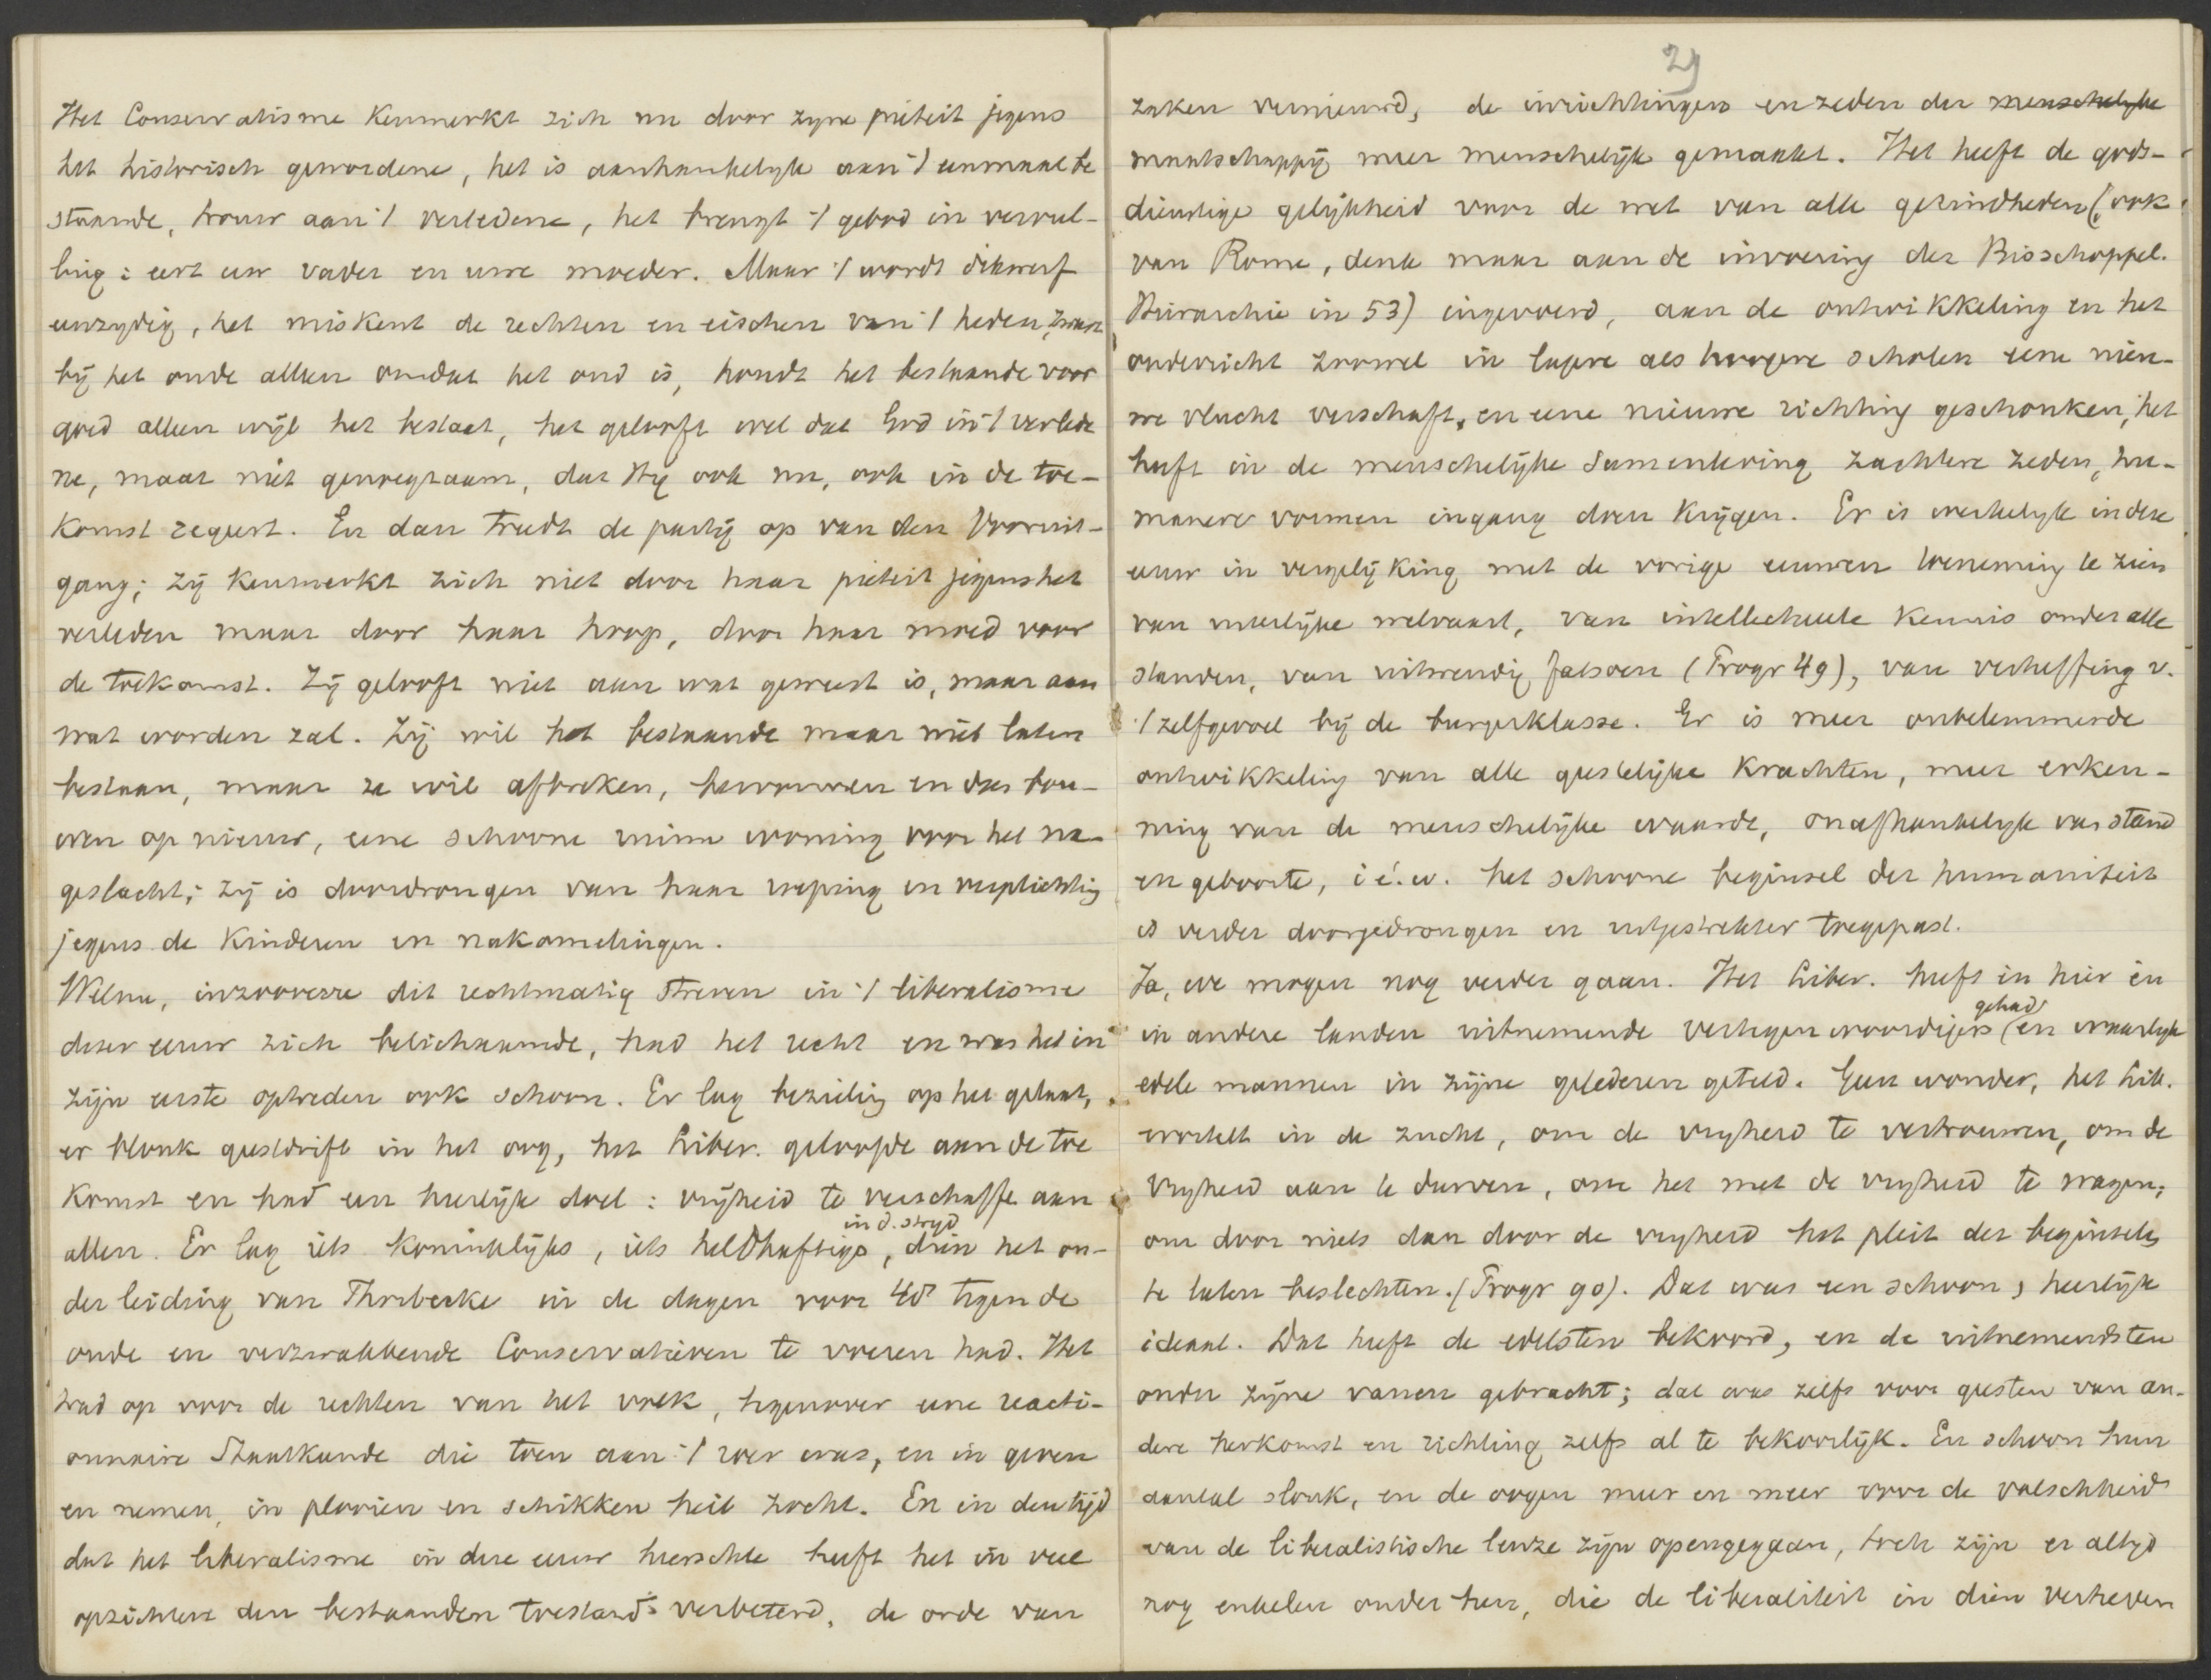 Het Conservatisme kenmerkt zich nu door zyne piëteit jegens
het historisch gewordene, het is aanhankelyk aan 't eenmaal be
staande, trouw aan 't verledene, het brengt 't gebod in vervul-
ling: eert uw vader en uwe moeder. Maar 't wordt dikwerf
eenzydig, het miskent de rechten en eischen van 't heden, zweert
bij het oude alleen omdat het oud is, houdt het bestaande voor
goed alleen wijl het bestaat, het gelooft wel dat God in 't verlede
ne, maar niet genoegzaam, dat Hij ook nu, ook in de toe-
komst regeert. En dan treedt de partij op van den Vooruit-
gang; zij kenmerkt zich niet door haar piëteit jegens het
verleden maar door haar hoop, door haar moed voor
de toekomst. Zij gelooft niet aan wat geweest is, maar aan
wat worden zal. Zij wil het bestaande maar niet laten
bestaan, maar ze wil afbreken, hervormen en dan bou-
wen op nieuw, eene schoone ruime woning voor het na-
geslacht; zij is doordrongen van haar roeping en verplichting
jegens de kinderen en nakomelingen.
Welnu, inzooverre dit rechtmatig streven in 't liberalisme
dezer eeuw zich belichaamde, had het recht en was het in
zijn eerste optreden ook schoon. Er lag bezieling op het gelaat,
er blonk geestdrift in het oog, het Liber. geloofde aan de toe
komst en had een heerlijk doel: vrijheid te verschaffe aan
allen. Er lag iets koninklijks, iets heldhaftigs, in d. stryd dien het on-
der leiding van Thorbecke in de dagen voor 48 tegen de
oude en verzwakkende Conservatieven te voeren had. Het
trad op voor de rechten van het volk, tegenover eene reacti-
onnaire Staatkunde die toen aan 't roer was, en in geven
en nemen, in plooien en schikken heil zocht. En in den tijd
dat het liberalisme in deze eeuw heerschte heeft het in veel
opzichten den bestaanden toestand verbeterd, de orde van
29
zaken vernieuwd, de inrichtingen en zeden der menschelyke
maatschappij meer menschelijk gemaakt. Het heeft de gods-
dienstige gelijkheid voor de wet van alle gezindheden (ook
van Rome, denk maar aan de invoering der Bisschoppel.
Hierarchie in 53) ingevoerd, aan de ontwikkeling en het
onderricht zoowel in lagere als hoogere scholen eene nieu-
we vlucht verschaft, en eene nieuwe richting geschonken, het
heeft in de menschelijke samenleving zachtere zeden, hu-
manere vormen ingang doen krijgen. Er is werkelyk in deze
eeuw in vergelijking met de vorige eeuwen toeneming te zien
van uiterlijke welvaart, van intellectueele kennis onder alle
standen, van uitwendig fatsoen (Progr 49), van verheffing v.
't zelfgevoel bij de burgerklasse. Er is meer onbelemmerde
ontwikkeling van alle geestelijke krachten, meer erken-
ning van de menschelijke waarde, onafhankelyk van stand
en geboorte, i é. w. het schoone beginsel der humaniteit
is verder doorgedrongen en uitgestrekter toegepast.
Ja, we mogen nog verder gaan. Het Liber. heeft in hier en
in andere landen uitnemende vertegenwoordigers gehad (en waarlyk
edele mannen in zijne gelederen geteld. Geen wonder, het Lib.
wortelt in de zucht, om de vryheid te vertrouwen, om de
vryheid aan te durven, om het met de vryheid te wagen;
om door niets dan door de vryheid het pleit der beginselen
te laten beslechten. (Progr 90). Dat was een schoon, heerlijk
ideaal. Dat heeft de edelsten bekoord, en de uitnemendsten
onder zijne vanen gebracht; dat was zelfs voor geesten van an-
dere herkomst en richting zelfs al te bekoorlijk. En schoon hun
aantal slonk, en de oogen meer en meer voor de valschheid
van de liberalistische leuze zijn opengegaan, toch zijn er altyd
nog enkelen onder hen, die de liberaliteit in dien verheven